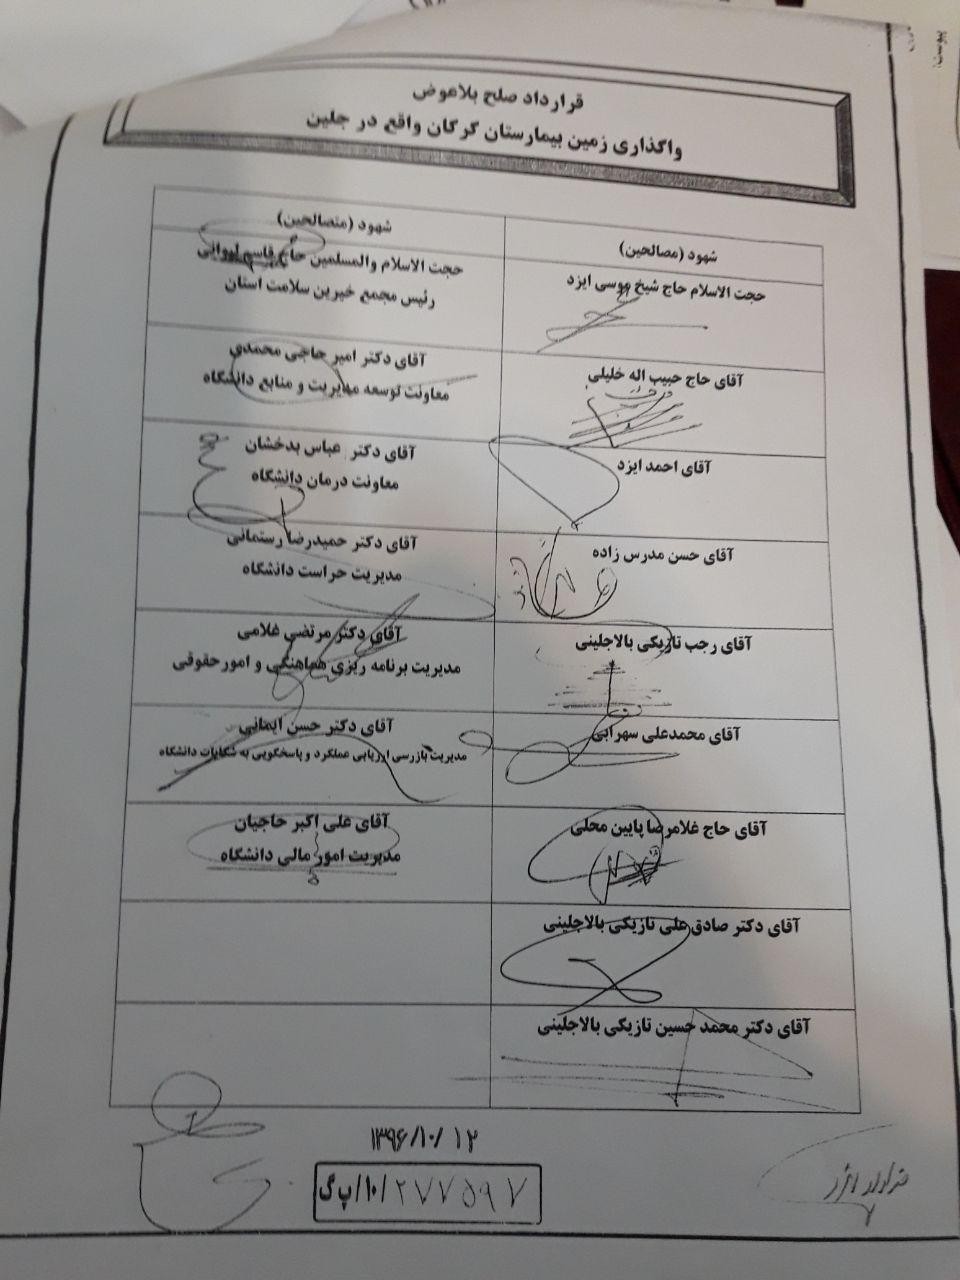 قرارداد صلح بلاعوض
واگذاری زمین بیمارستان گرگان واقع در جلین
شهود (مصالحین)
شهود (متصالحین)
حجت الاسلام حاج شیخ موسی ایزد
حجت الاسلام والمسلمین حاج قاسم ایوانی
رئیس مجمع خیرین سلامت استان
آقای حاج حبیب اله خلیلی
آقای دکتر امیر حاجی محمدی
معاونت توسعه مدیریت و منابع دانشگاه
آقای احمد ایزد
آقای دکتر عباس بدخشان
معاونت درمان دانشگاه
آقای حسن مدرس زاده
آقای دکتر حمیدرضا رستمانی
مدیریت حراست دانشگاه
آقای رجب تازیکی بالاجلینی
آقای دکتر مرتضی غلامی
مدیریت برنامه ریزی هماهنگی و امورحقوقی
آقای محمدعلی سهرابی
آقای دکتر حسن ایمانی
مدیریت بازرسی ارزیابی عملکرد و پاسخگویی به شکایات دانشگاه
آقای حاج غلامرضا پایین محلی
آقای علی اکبر حاجیان
مدیریت امور مالی دانشگاه
آقای دکتر صادق علی تازیکی بالاجلینی
آقای دکتر محمد حسین تازیکی بالاجلینی
۱۳۹۶/۱۰/۱۲
۲۷۷۵۹۷/۱۰/پ گ
پیوست: